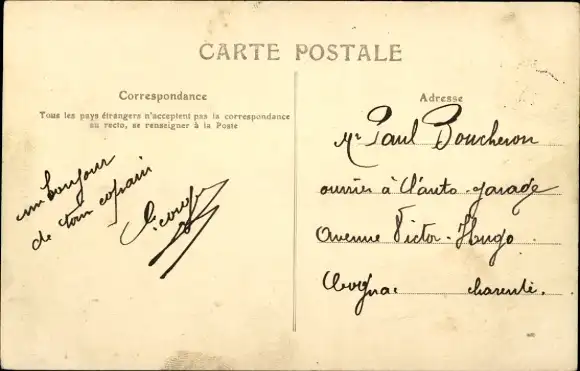 CARTE POSTALE
Correspondance
Tous les pays étrangers n'acceptent pas la correspondance
au recto, se renseigner à la Poste
un bonjour
de ton copain
Adresse
Mr Paul Boucheron
ouvrier à l'auto-garage
Avenue Victor-Hugo
Cognac charente.